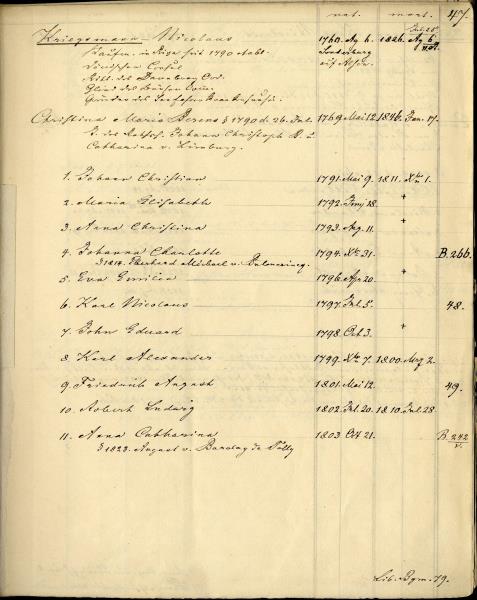 nat. mort. 47.
Kriegsmann Nicolaus 1760. Ag. 6. 1826. Ag. 6.
Kaufm. in Riga seit 1790 Aeltst. Sonderburg
Dänischer Consul auf Alsen.
Ritt. des Danebrog Ord.
Glied der
Gründer der
Christina Maria Berens § 1790 d. 26. Jul. 1769. Mai 12. 1846. Jan. 17.
T. des Rathsh. Johann Christoph B. u.
Catharina v.
1. Johann Christian 1791. Mai 9. 1811. Xbr 1.
2. Maria Elisabeth 1792. Junj 18. +
3. Anna Christina 1793. Aug. 11.
4. Johanna Charlotte 1794. Xbr 31. B. 266.
§ 1814. Eberhard Michael v.
5. Eva Emilie 1796. Apr 20. +
6. Karl Nicolaus 1797. Jul. 5. 48.
7. John Eduard 1798. Oct 3. +
8. Karl Alexander 1799. Xbr 7. 1800. Mrz 2.
9. Friedrich August 1801. Mai 12. 49.
10. Robert Ludwig 1802. Jul. 20. 1810. Jul. 28.
11. Anna Catharina 1803. Oct 21. B. 242
§ 1823. August v. Barclay de Tolly v.
Lib. Bgm. 79.